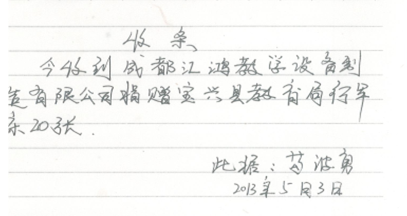 收条
今收到成都汇鸿教学设备制
造有限公司捐赠宝兴县教育局行军
床20张.
此据:苟波勇
2013年5月3日